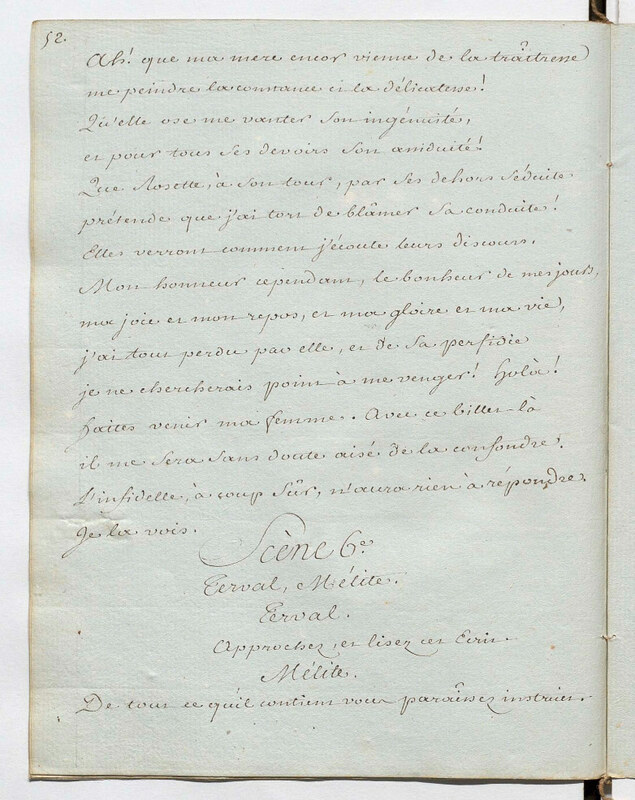 52.
Ah! que ma mere encor vienne de la traîtresse
me peindre la constance et la délicatesse!
Qu'elle ose me vanter son ingénuité,
et pour tous ses devoirs son assiduité!
Que Rosette, à son tour, par ses dehors séduite
prétende que j'ai tort de blâmer sa conduite!
Elles verront comment j'écoute leurs discours.
Mon honneur cependant, le bonheur de mes jours,
ma joie et mon repos, et ma gloire et ma vie,
j'ai tout perdu par elle, et de sa perfidie
je ne chercherais point à me venger! Holà!
faites venir ma femme. Avec ce billet-là
il me sera sans doute aisé de la confondre.
L'infidelle, à coup sûr, n'aura rien à répondre.
Je la vois.
Scène 6e
Terval, Mélite.
Terval.
Approchez, et lisez cet Ecrit.
Mélite.
De tout ce qu'il contient vous paraîssez instruit.